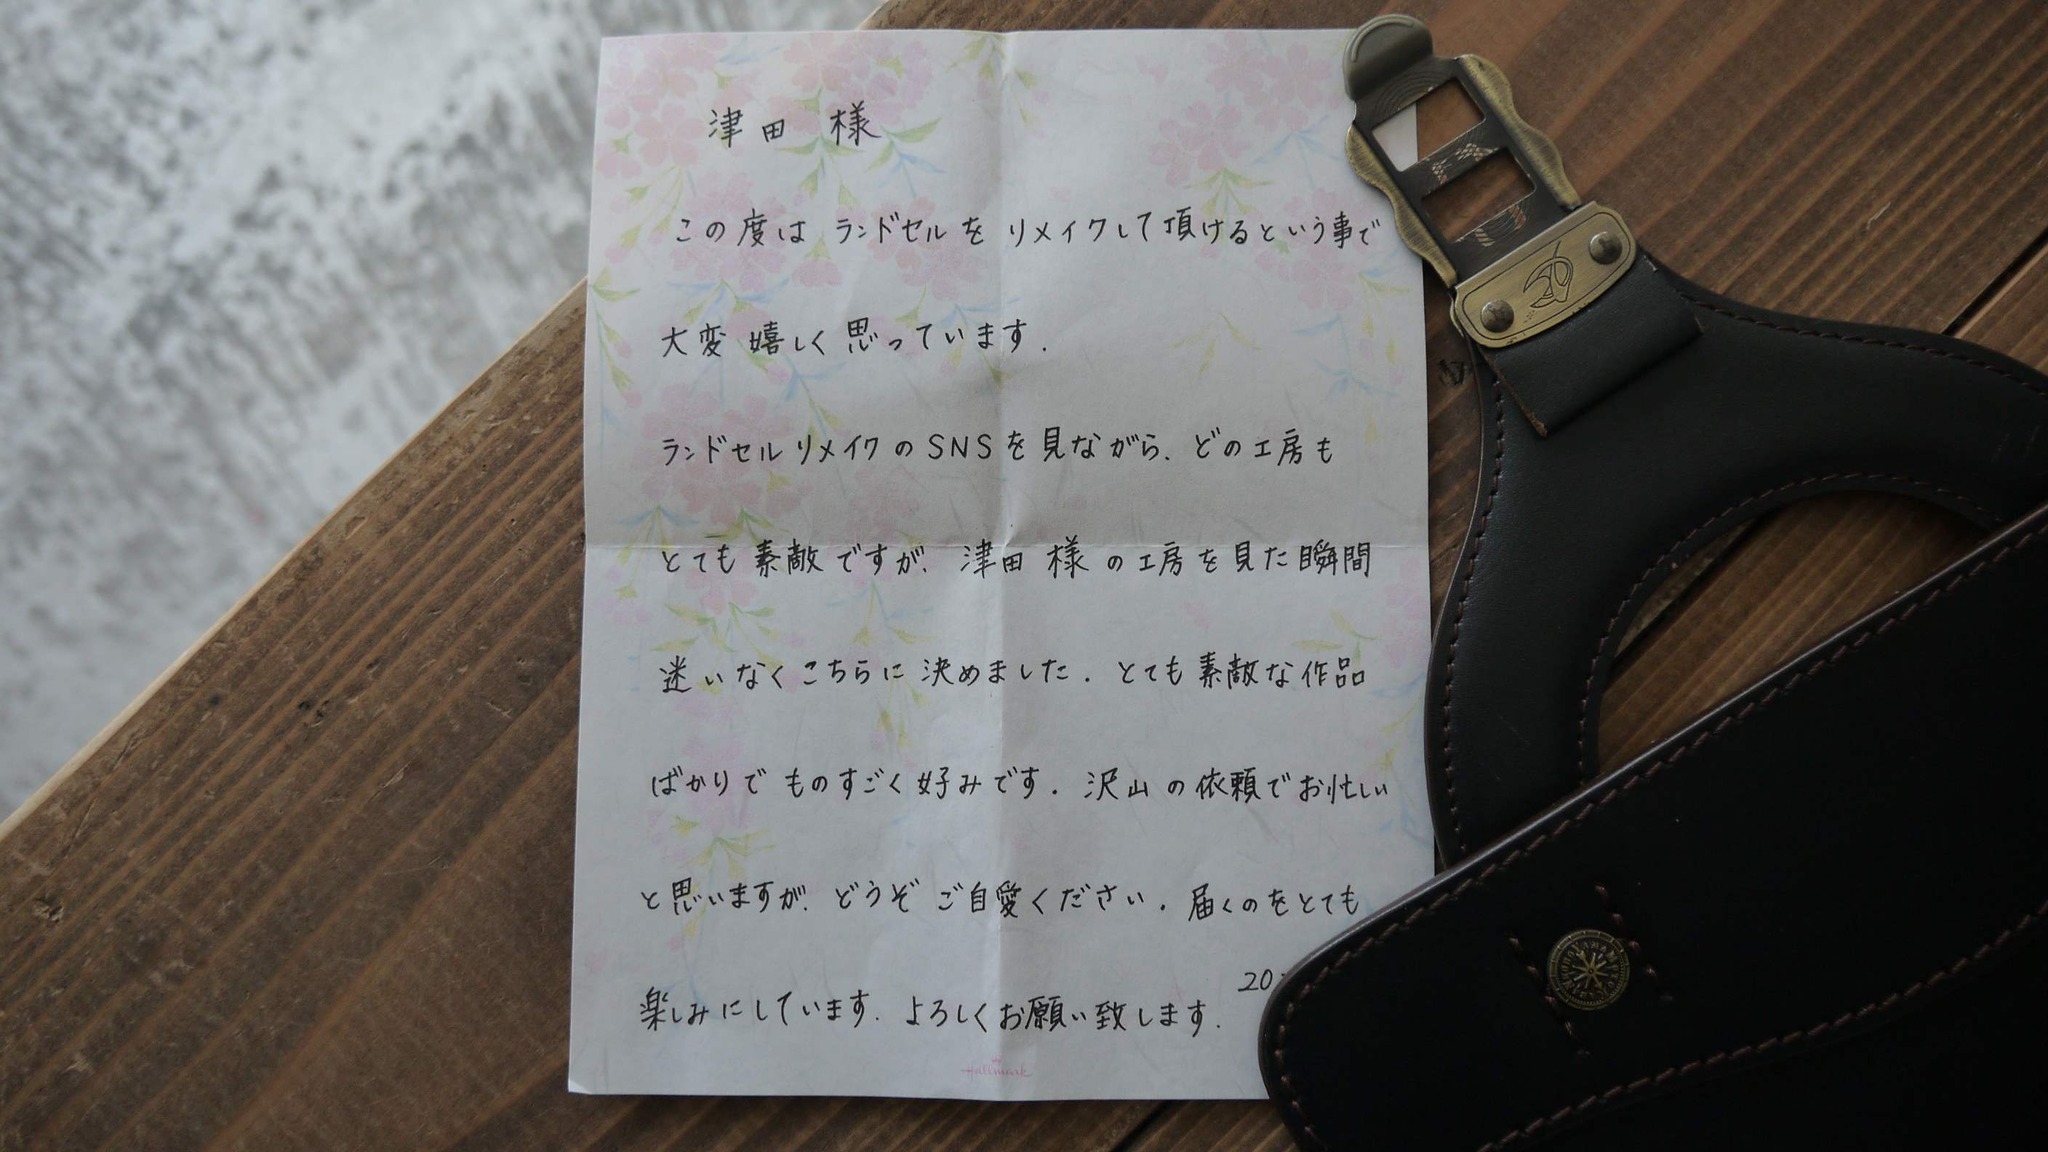 津田 様
この度は ランドセルを リメイクして頂けるという事で
大変 嬉しく思っています.
ランドセルリメイクのSNSを見ながら、どの工房も
とても素敵ですが、津田様の工房を見た瞬間
迷いなくこちらに決めました. とても素敵な作品
ばかりで ものすごく好みです. 沢山の依頼でお忙しい
と思いますが、どうぞ ご自愛ください. 届くのをとても
楽しみにしています. よろしくお願い致します.
20
Hallmark